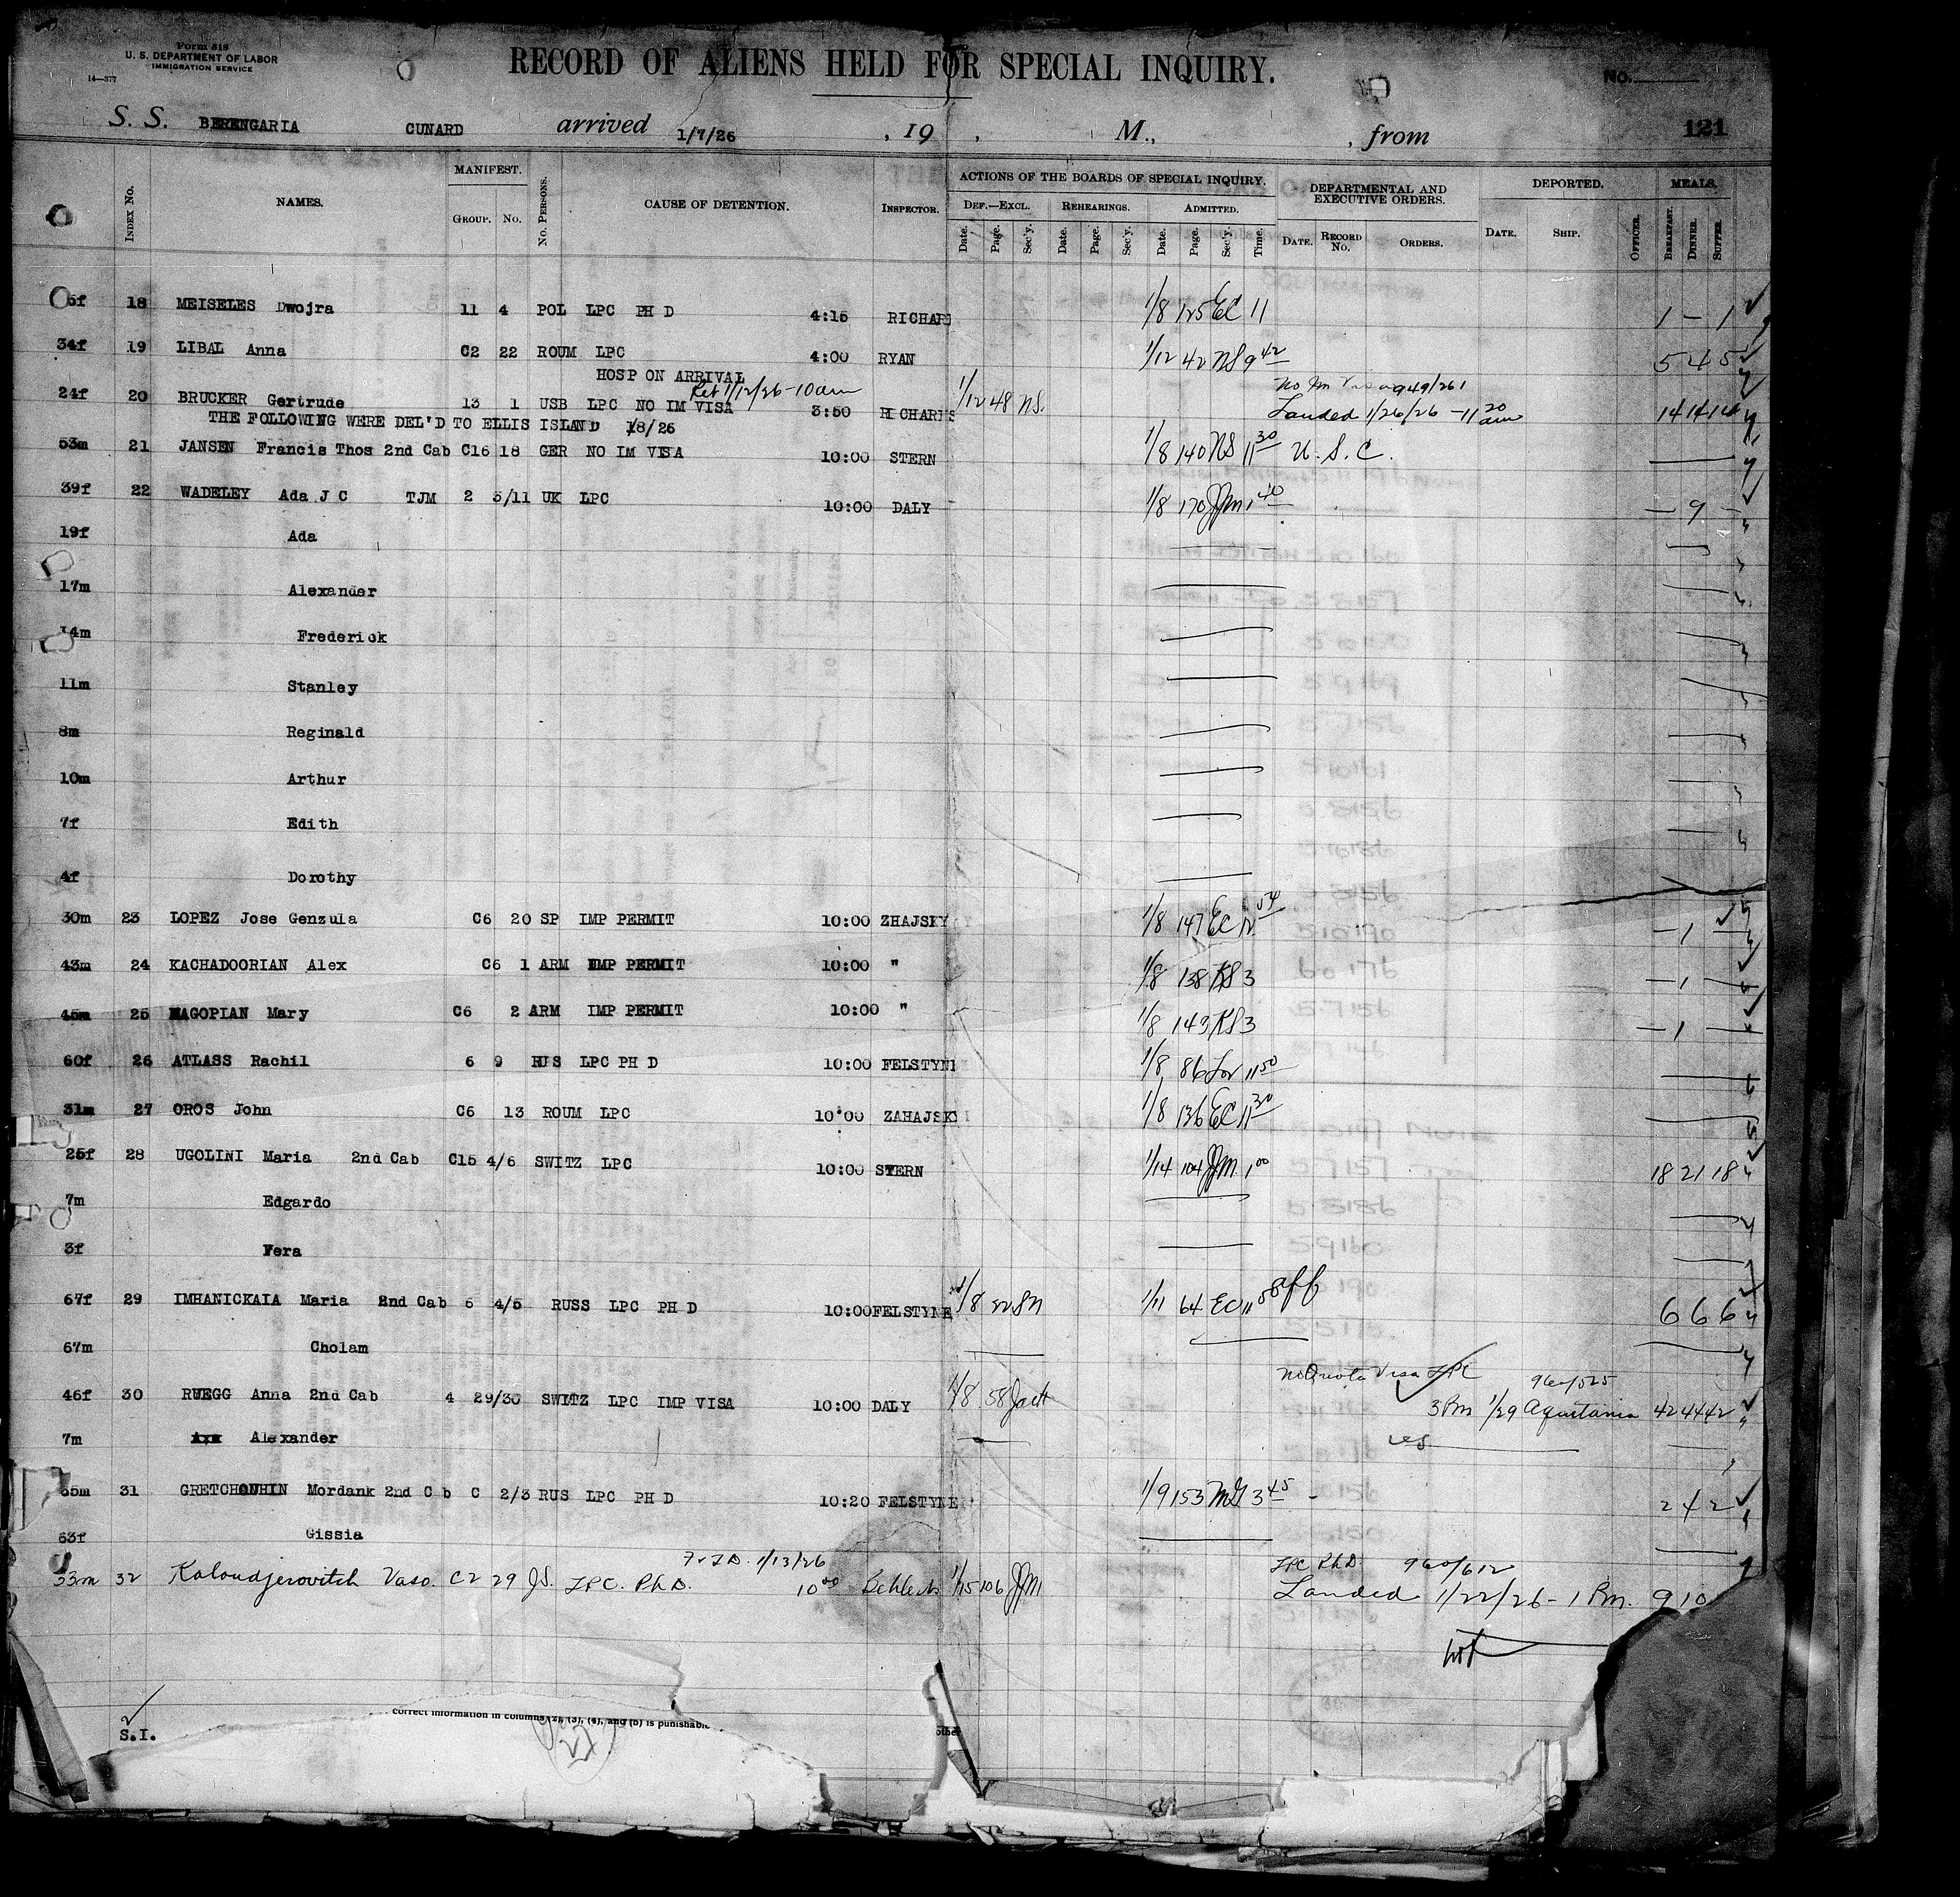 Form 518
U. S. DEPARTMENT OF LABOR
IMMIGRATION SERVICE
14—377
RECORD OF ALIENS HELD FOR SPECIAL INQUIRY.
No.
S. S. BERENGARIA CUNARD arrived 1/7/26 , 19 , M., , from 121
Index No. NAMES. MANIFEST. Group. No. No. Persons. CAUSE OF DETENTION. Inspector. ACTIONS OF THE BOARDS OF SPECIAL INQUIRY. DEPARTMENTAL AND EXECUTIVE ORDERS. DEPORTED. MEALS.
Def.—Excl. Rehearings. Admitted.
Date. Page. Sec'y. Date. Page. Sec'y. Date. Page. Sec'y. Time. Date. Record No. Orders. Date. Ship. Officer. Breakfast. Dinner. Supper.
5f 18 MEISELES Dwojra 11 4 POL LPC PH D 4:15 RICHARD 1/8 125 EC 11 1 — 1
34f 19 LIBAL Anna C2 22 ROUM LPC 4:00 RYAN 1/12 42 NS 9 42 5 4 5
HOSP ON ARRIVAL
Ret 1/12/26-10am
24f 20 BRUCKER Gertrude 13 1 USB LPC NO IM VISA 3:50 RICHARDS 1/12 48 NS. No Im Visa 949/261
Landed 1/26/26 -11 20 am 14 14 14
THE FOLLOWING WERE DEL'D TO ELLIS ISLAND 1/8/26
53m 21 JANSEN Francis Thos 2nd Cab C16 18 GER NO IM VISA 10:00 STERN 1/8 140 NS 11 30 U.S.C.
39f 22 WADELEY Ada J C TJM 2 3/11 UK LPC 10:00 DALY 1/8 170 JJM 1 40 — 9 —
19f Ada
17m Alexander
14m Frederick
11m Stanley
8m Reginald
10m Arthur
7f Edith
4f Dorothy
30m 23 LOPEZ Jose Genzula C6 20 SP IMP PERMIT 10:00 ZHAJSKY 1/8 147 EC 12 54 — 1 —
43m 24 KACHADOORIAN Alex C6 1 ARM IMP PERMIT 10:00 " 1/8 138 KS 3 — 1 —
45m 25 HAGOPIAN Mary C6 2 ARM IMP PERMIT 10:00 " 1/8 149 KS 3 — 1 —
60f 26 ATLASS Rachil 6 9 RUS LPC PH D 10:00 FELSTYNE 1/8 86 11 50
31m 27 OROS John C6 13 ROUM LPC 10:00 ZAHAJSKY 1/8 136 EC 11 30
25f 28 UGOLINI Maria 2nd Cab C15 4/6 SWITZ LPC 10:00 STERN 1/14 104 JJM 1 00 18 21 18
7m Edgardo
3f Vera
67f 29 IMHANICKAIA Maria 2nd Cab 6 4/5 RUSS LPC PH D 10:00 FELSTYNE 1/8 SN 1/11 64 EC 11 58 aff 6 6 6
67m Cholam
46f 30 RUEGG Anna 2nd Cab 4 29/30 SWITZ LPC IMP VISA 10:00 DALY 1/8 58 No Quota Visa LPC
3 Pm 1/29 Aquitania 42 44 42
7m Alexander
65m 31 GRETCHOUHIN Mordank 2nd C b C 2/3 RUS LPC PH D 10:20 FELSTYNE 1/9 153 MG 3 45 2 4 2
63f Gissia
33m 32 Kaloudjerovitch Vaso. C2 29 J.S. LPC. Ph.D. 1/13/26 10 00 1/15 106 JJM LPC Ph.D. 960/612
Landed 1/22/26 - 1 Pm. 9 10
S.I.
correct information in columns (2), (3), (4), and (5) is punishable